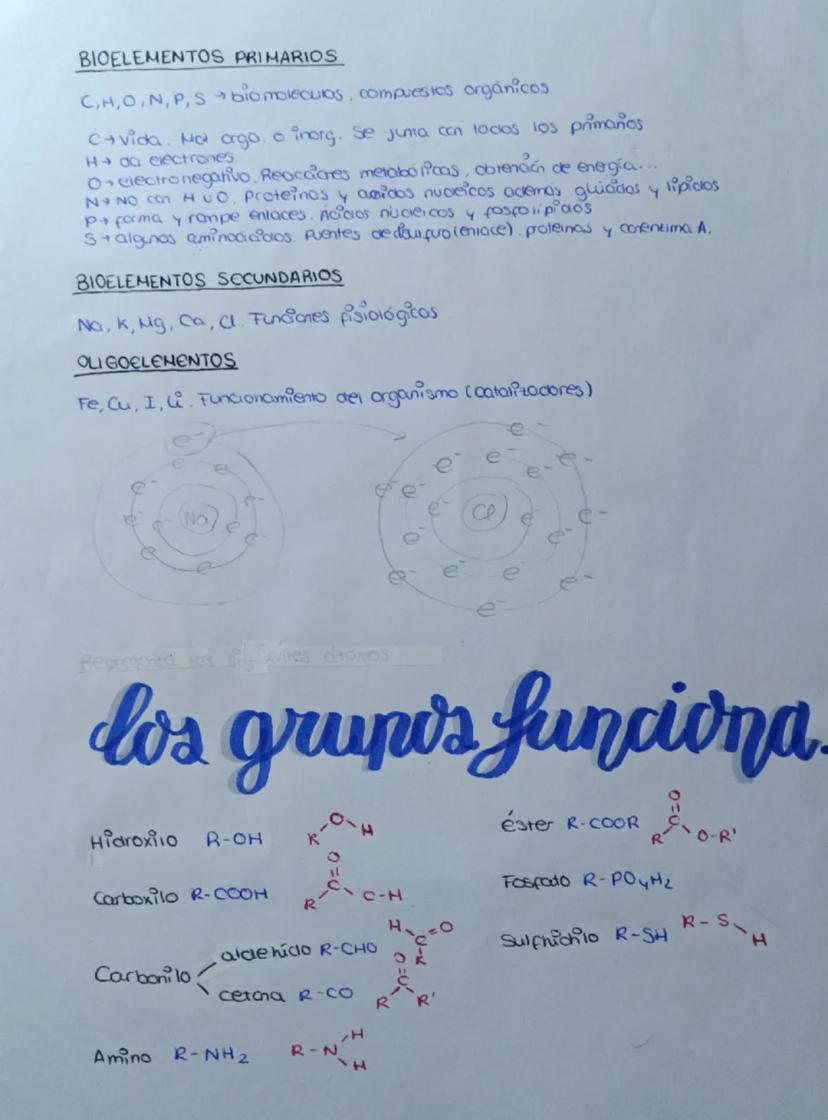 BIOELEMENTOS PRIMARIOS
C, H, O, N, P, S → biomoléculas, compuestos orgánicos
C → vida. Mol orga. o inorg. Se junta con todos los primarios
H → da electrones
O → electronegativo. Reacciones metabólicas, obtención de energía...
N → NO con H u O. Proteínas y ácidos nucleicos además glúcidos y lípidos
P → forma y rompe enlaces. Ácidos nucleicos y fosfolípidos
S → algunos aminoácidos. Puentes de disulfuro (enlace). proteínas y coenzima A.
BIOELEMENTOS SECUNDARIOS
Na, K, Mg, Ca, Cl. Funciones fisiológicas
OLIGOELEMENTOS
Fe, Cu, I, Li. Funcionamiento del organismo (catalizadores)
e- e- e- e- e- e- e- e- e- e- e- Na
e- e- e- e- e- e- e- e- e- e- e- e- e- e- e- e- e- Cl
Representa los siguientes átomos
los grupos funciona.
Hidroxilo R-OH R O H
Carboxilo R-COOH O = C R C-H
Carbonilo
aldehído R-CHO H C = O R
cetona R-CO O = C R R'
Amino R-NH2 R-N H H
éster R-COOR O = C R O-R'
Fosfato R-PO4H2
Sulfhidrilo R-SH R-S H